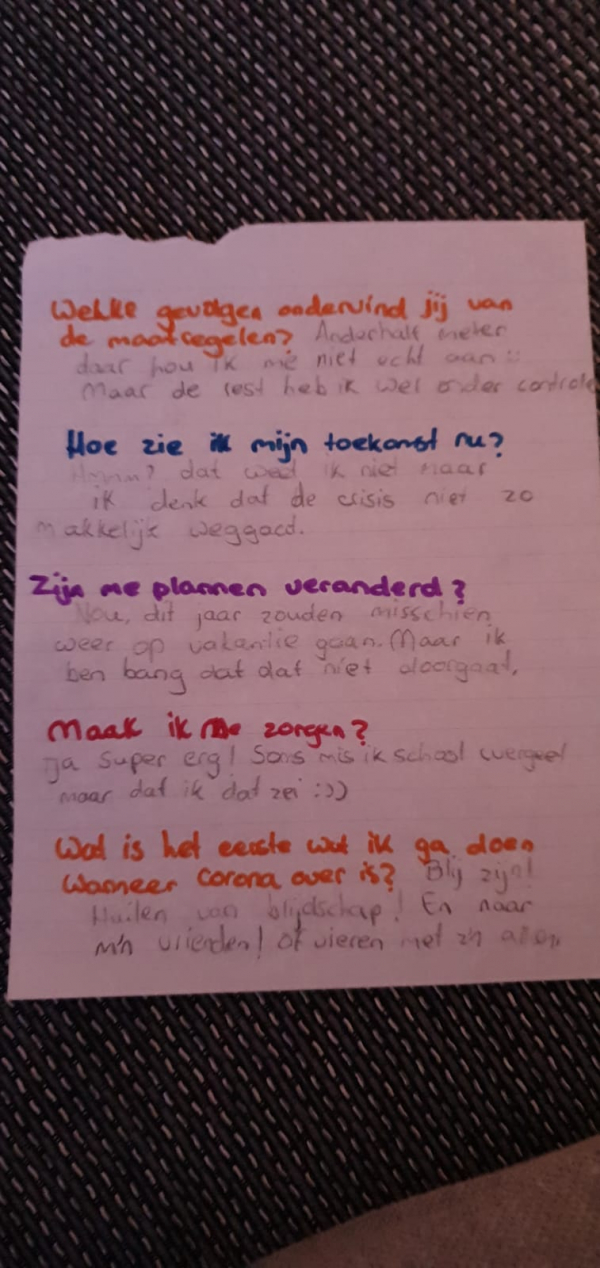 Welke gevolgen ondervind jij van
de maatregelen? Anderhalf meter
daar hou ik me niet echt aan ::
Maar de rest heb ik wel onder controle
Hoe zie ik mijn toekomst nu?
Hmmm? dat weet ik niet maar
ik denk dat de crisis niet zo
makkelijk weggaad.
Zijn me plannen veranderd?
Nou, dit jaar zouden misschien
weer op vakantie gaan. Maar ik
ben bang dat dat niet doorgaat.
Maak ik me zorgen?
Ja super erg! Soms mis ik school
maar dat ik dat zei :))
Wat is het eerste wat ik ga doen
wanneer corona over is? Blij zijn!
Huilen van blijdschap! En naar
m'n vrienden! Of vieren met z'n allen.